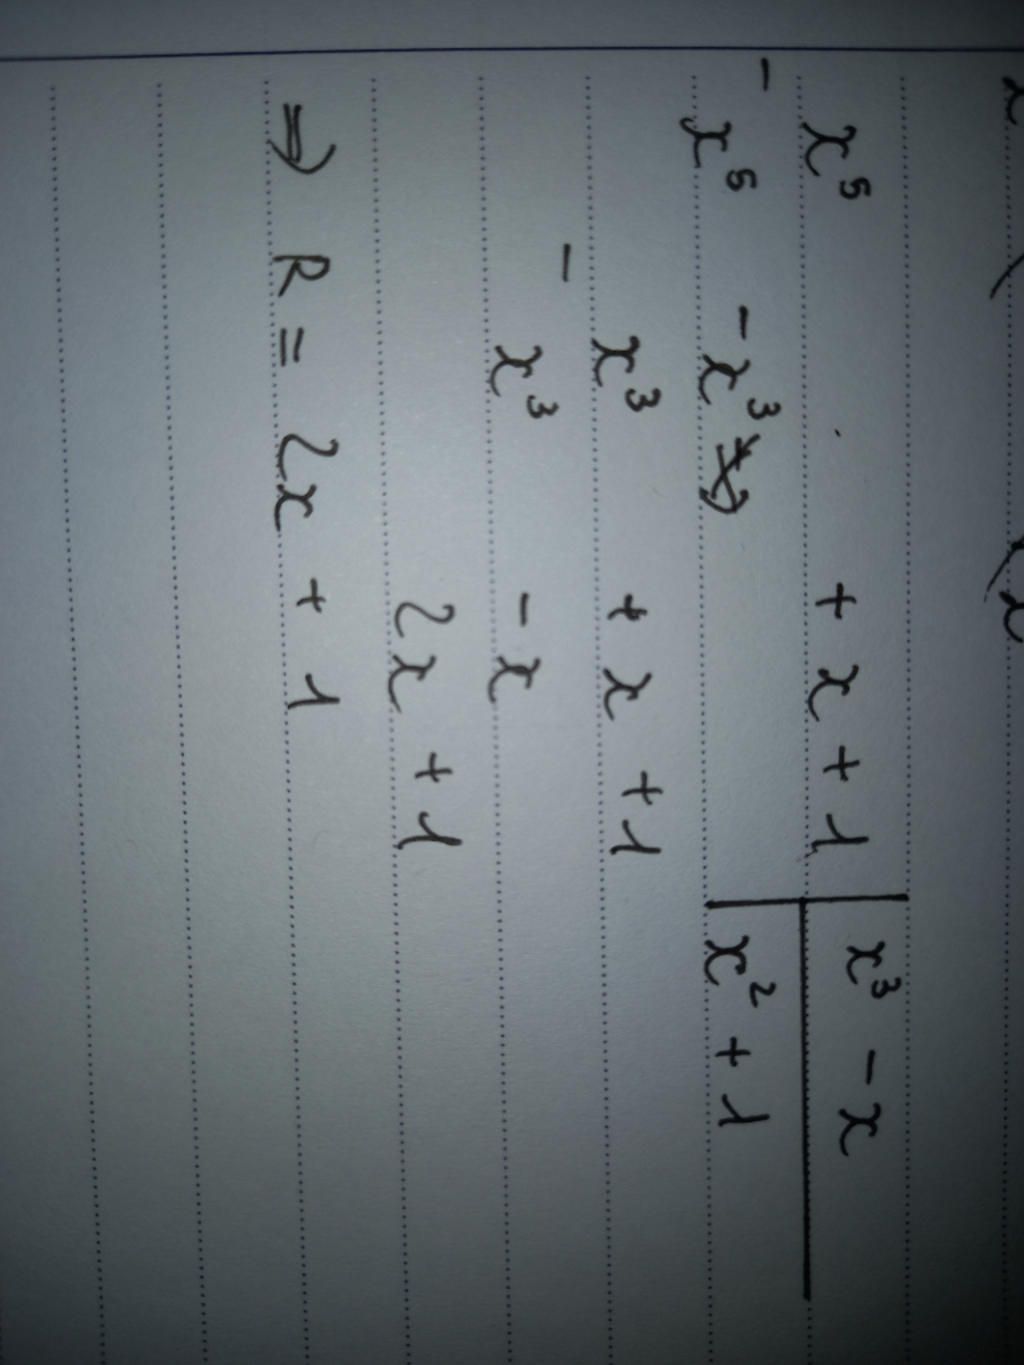 x⁵ + x + 1 | x³ - x
- x⁵ - x³ | x² + 1
x³ + x + 1
- x³ - x
2x + 1
⇒ R = 2x + 1